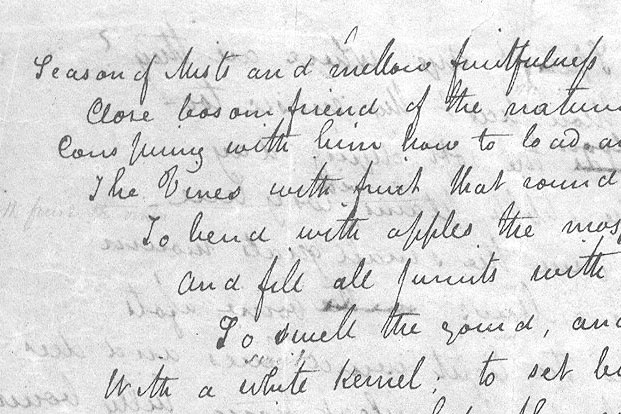 Season of Mists and mellow fruitfulness
Close bosom friend of the natur
Conspiring with him how to load a
The Vines with fruit that round
To bend with apples the mos
and fill all furuits with
To swell the gourd, and
With a white kernel; to set bu